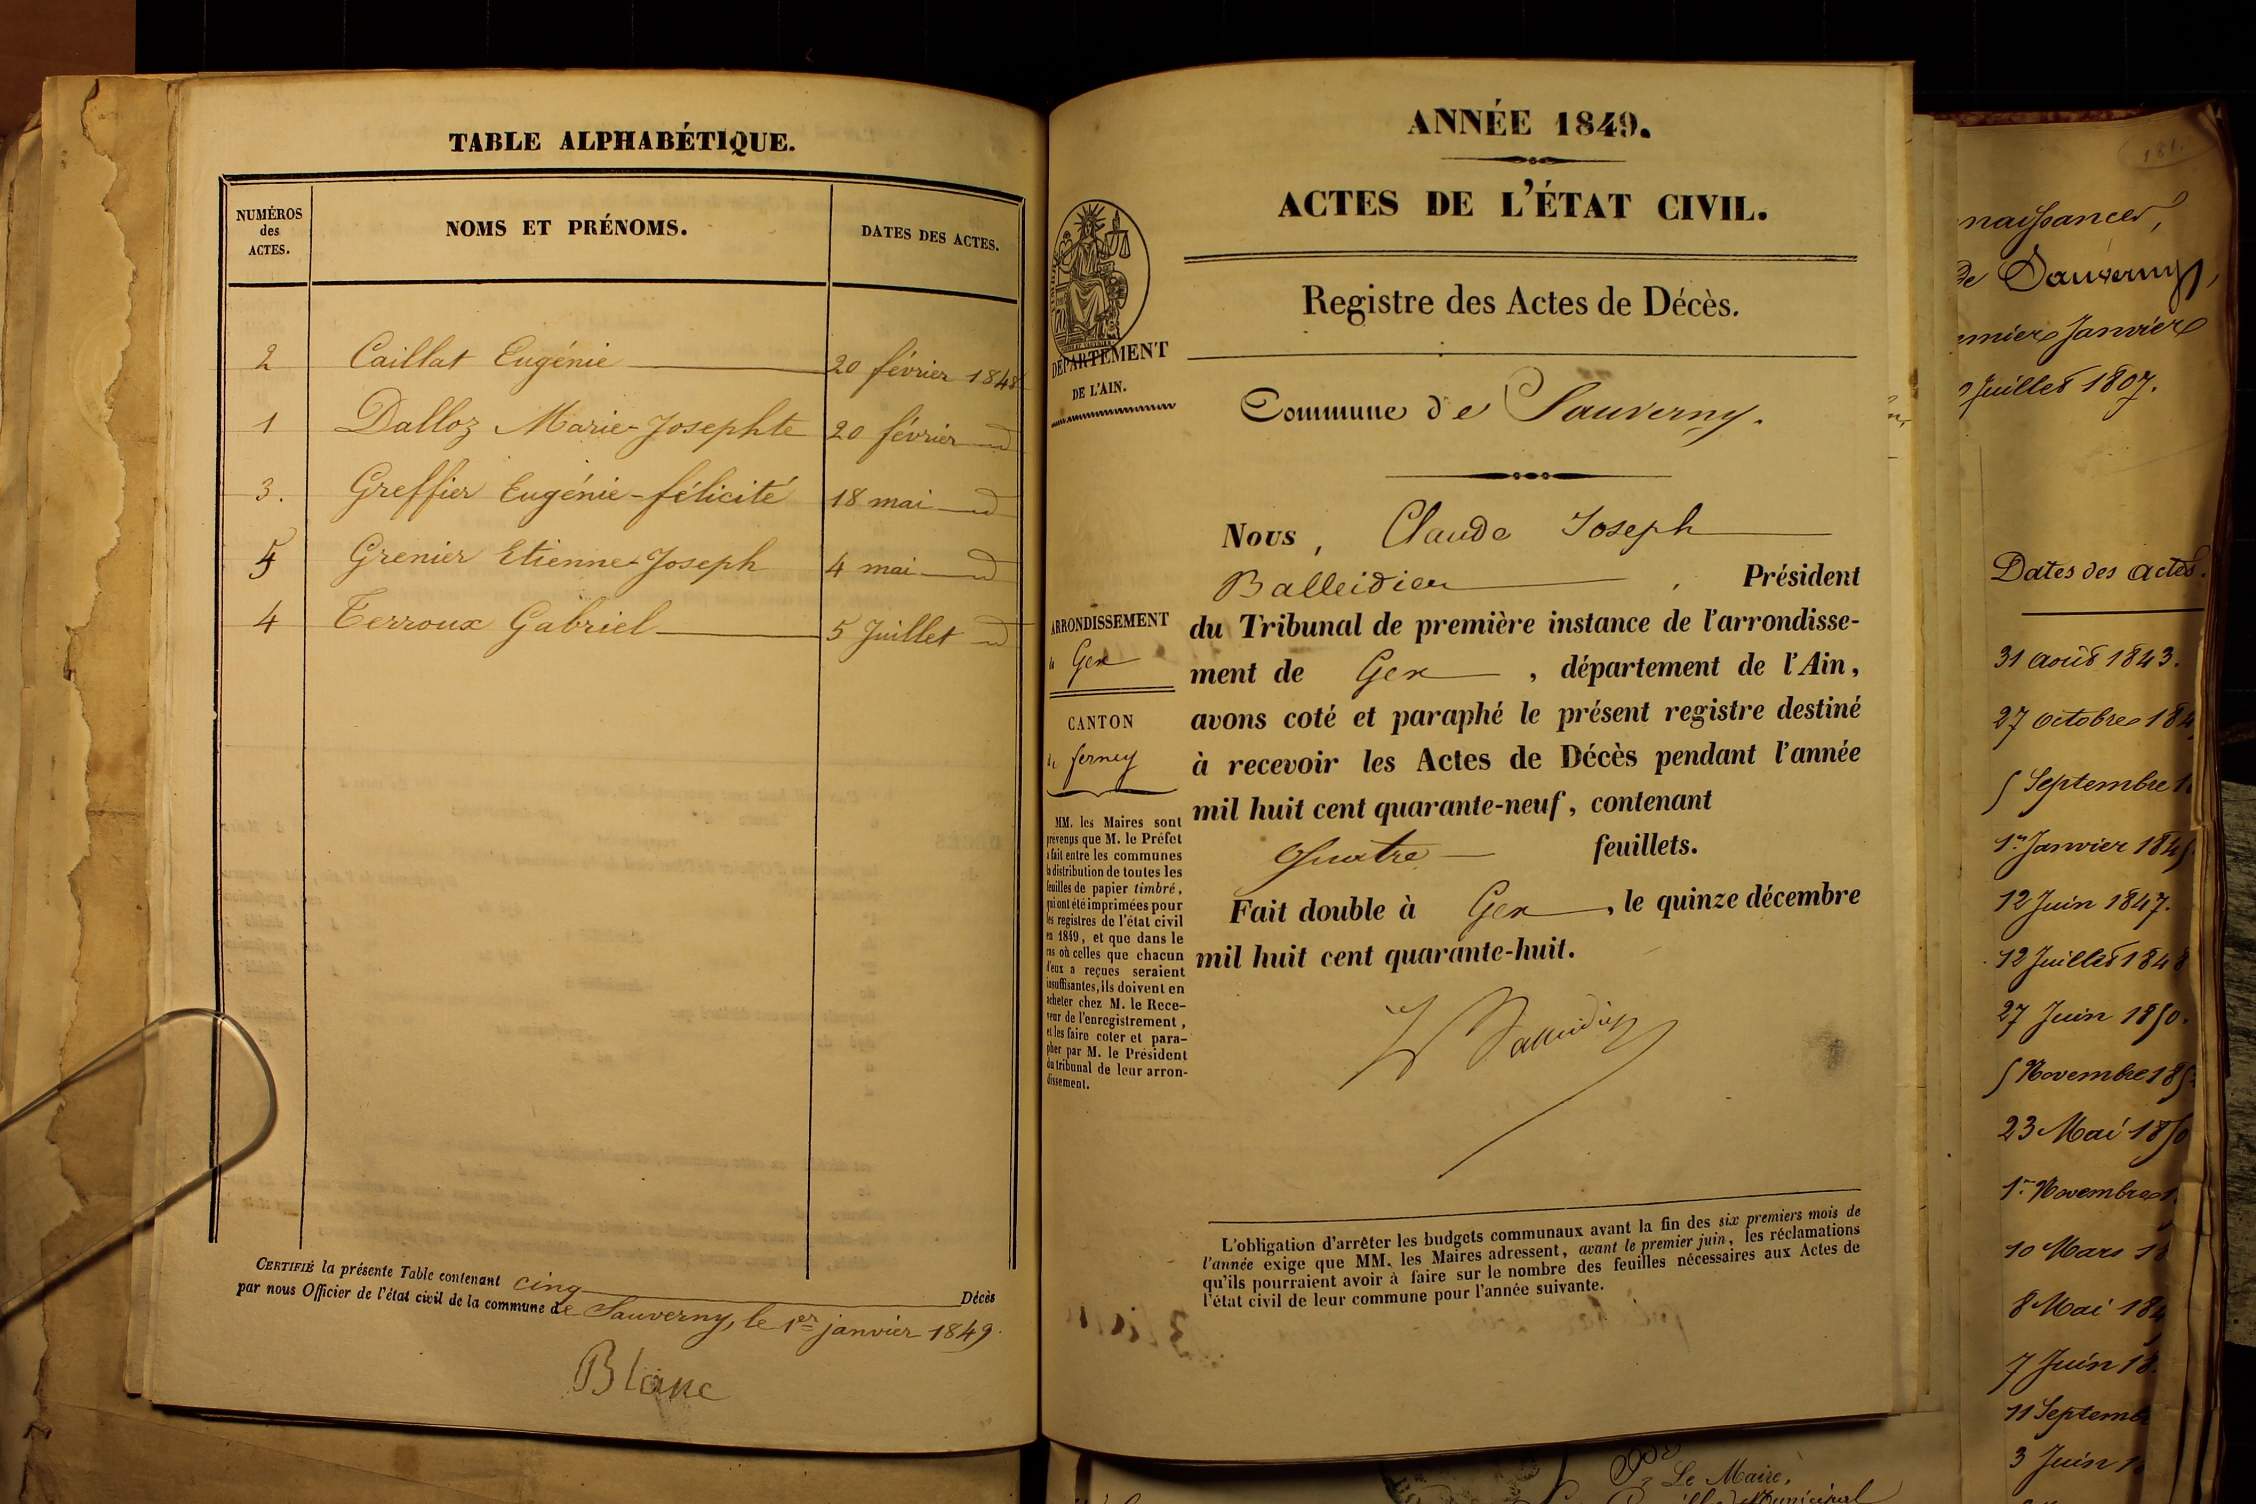 TABLE ALPHABÉTIQUE.
NUMÉROS
des
ACTES.
NOMS ET PRÉNOMS.
DATES DES ACTES.
2 Caillat Eugénie 20 février 1848
1 Dalloz Marie-Josephte 20 février d
3. Greffier Eugénie-félicité 18 mai d
5 Grenier Etienne-Joseph 4 mai d
4 Terroux Gabriel 5 Juillet d
CERTIFIÉ la présente Table contenant cinq Décès
par nous Officier de l'état civil de la commune de Sauverny, le 1er janvier 1849.
Blanc
ANNÉE 1849.
ACTES DE L'ÉTAT CIVIL.
Registre des Actes de Décès.
DÉPARTEMENT
DE L'AIN.
Commune de Sauverny.
Nous, Claude Joseph
Balleidier, Président
du Tribunal de première instance de l'arrondisse-
ment de Gex, département de l'Ain,
avons coté et paraphé le présent registre destiné
à recevoir les Actes de Décès pendant l'année
mil huit cent quarante-neuf, contenant
Quatre feuillets.
Fait double à Gex, le quinze décembre
mil huit cent quarante-huit.
ARRONDISSEMENT
de Gex
CANTON
de ferney
MM. les Maires sont
prévenus que M. le Préfet
a fait entre les communes
la distribution de toutes les
feuilles de papier timbré,
qui ont été imprimées pour
les registres de l'état civil
en 1849, et que dans le
cas où celles que chacun
d'eux a reçues seraient
insuffisantes, ils doivent en
acheter chez M. le Rece-
veur de l'enregistrement,
et les faire coter et para-
pher par M. le Président
du tribunal de leur arron-
dissement.
L'obligation d'arrêter les budgets communaux avant la fin des six premiers mois de
l'année exige que MM. les Maires adressent, avant le premier juin, les réclamations
qu'ils pourraient avoir à faire sur le nombre des feuilles nécessaires aux Actes de
l'état civil de leur commune pour l'année suivante.
181.
naissances,
de Sauverny,
Janvier
Juillet 1807.
Dates des actes.
31 août 1843.
27 octobre 184
5 Septembre 1
1er Janvier 1845.
12 Juin 1847.
12 Juillet 1848
27 Juin 1850.
5 Novembre 185
23 Mai 1850
1er Novembre 1
10 Mars 18
8 Mai 184
7 Juin 18
11 Septemb
3 Juin 1
Le Maire,
Municipal